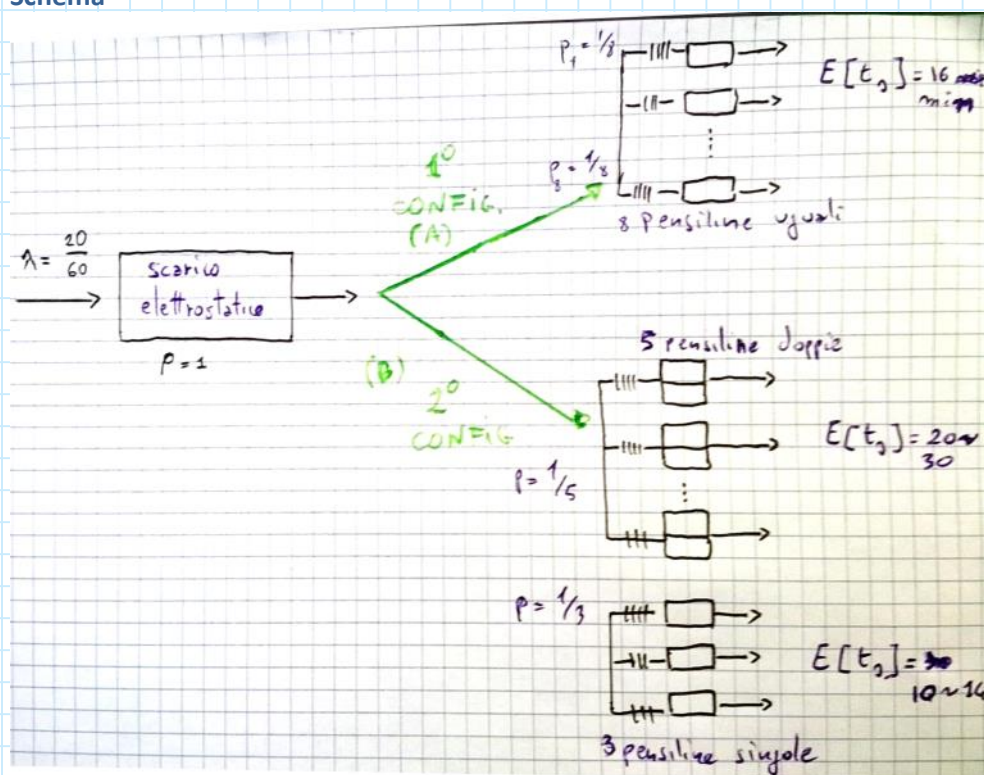 Schema
λ = 20/60
scarico
elettrostatico
P = 1
1°
CONFIG.
(A)
(B)
2°
CONFIG
P₁ = 1/8
P₈ = 1/8
E[tₛ] = 16
min
8 pensiline uguali
5 pensiline doppie
P = 1/5
E[tₛ] = 20~
30
P = 1/3
E[tₛ] =
10~14
3 pensiline singole